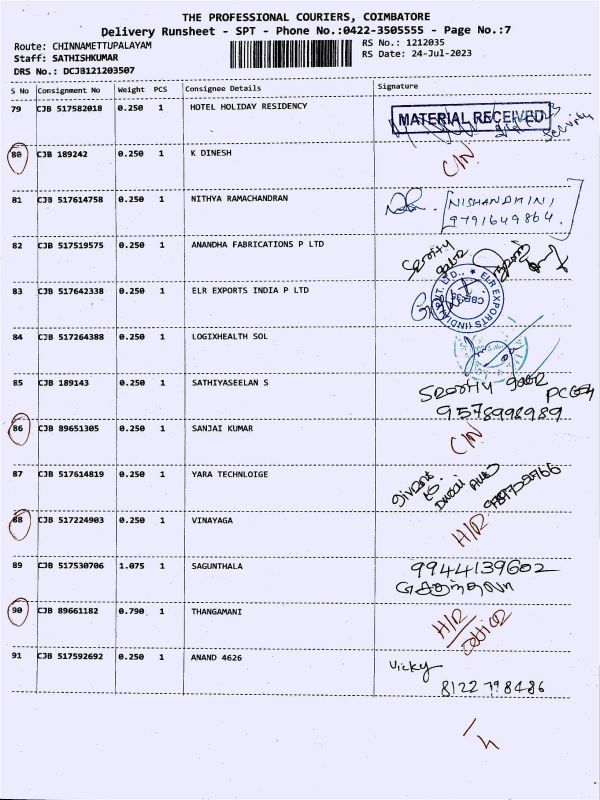 THE PROFESSIONAL COURIERS, COIMBATORE
Delivery Runsheet - SPT - Phone No.:0422-3505555 - Page No.:7
Route: CHINNAMETTUPALAYAM RS No.: 1212035
Staff: SATHISHKUMAR RS Date: 24-Jul-2023
DRS No.: DCJB121203507
S No Consignment No Weight PCS Consignee Details Signature
79 CJB 517582018 0.250 1 HOTEL HOLIDAY RESIDENCY MATERIAL RECEIVED
security
80 CJB 189242 0.250 1 K DINESH C/N
81 CJB 517614758 0.250 1 NITHYA RAMACHANDRAN NISHANDHINI
9791649864.
82 CJB 517519575 0.250 1 ANANDHA FABRICATIONS P LTD
83 CJB 517642338 0.250 1 ELR EXPORTS INDIA P LTD ELR EXPORTS (INDIA) PVT. LTD.,
84 CJB 517264388 0.250 1 LOGIXHEALTH SOL
85 CJB 189143 0.250 1 SATHIYASEELAN S
9578998989
86 CJB 89651305 0.250 1 SANJAI KUMAR C/N
87 CJB 517614819 0.250 1 YARA TECHNLOIGE
88 CJB 517224903 0.250 1 VINAYAGA H/R
89 CJB 517530706 1.075 1 SAGUNTHALA 9944139602
90 CJB 89661182 0.790 1 THANGAMANI H/R
91 CJB 517592692 0.250 1 ANAND 4626 Vicky
8122798486